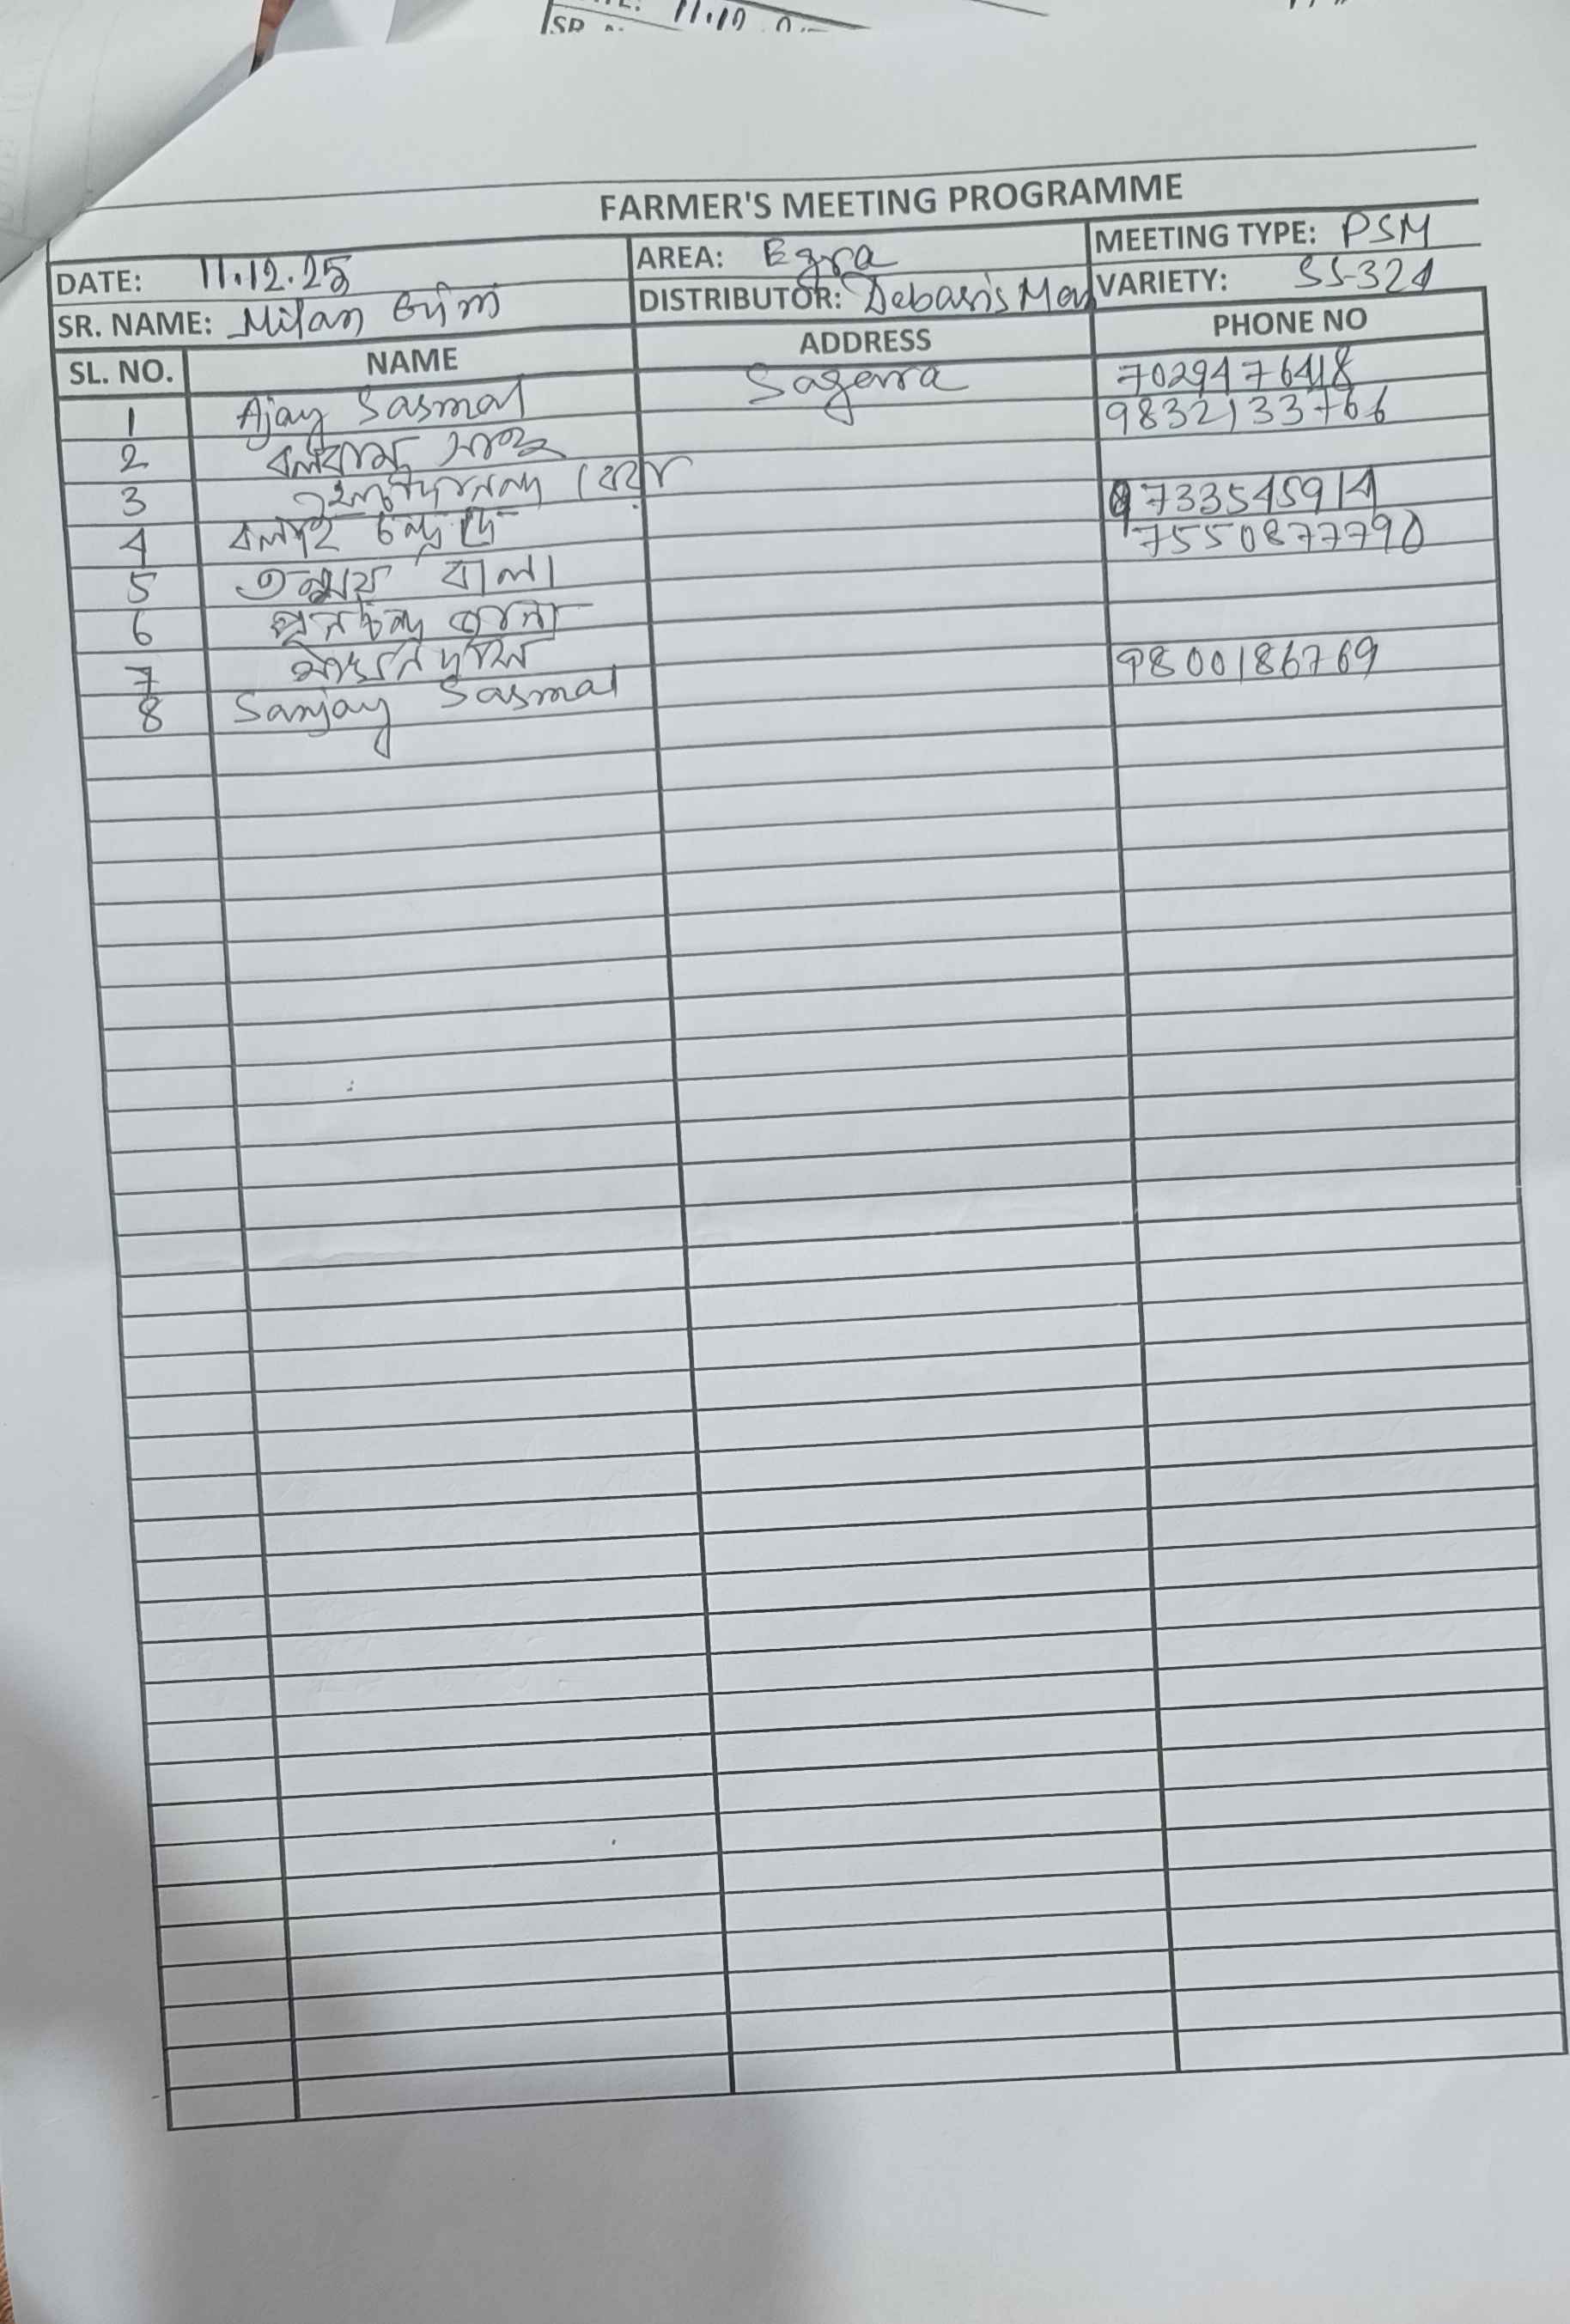 SR
11.12
FARMER'S MEETING PROGRAMME
DATE: 11.12.25 AREA: Egra MEETING TYPE: PSM
SR. NAME: Milan DISTRIBUTOR: Debasis VARIETY: SS-324
SL. NO. NAME ADDRESS PHONE NO
1 Ajay Sasmal Sagerra 7029476418
2 বলরাম সাহু 9832133766
3
4 বলাই চন্দ্র দে 9733545914
5 তন্ময় বালা 7550877790
6
7
8 Sanjay Sasmal 9800186769